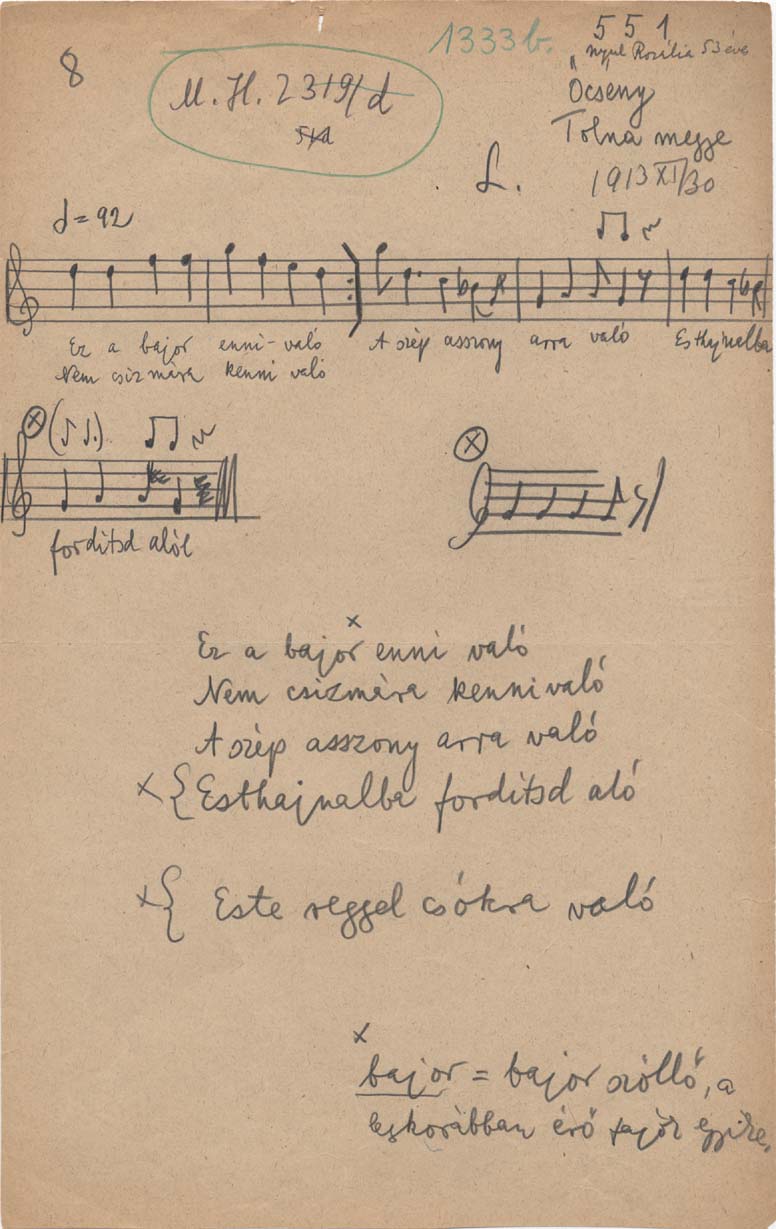 8
1333b.
551
Nyul Rozália 53 éve
M. H. 2319/d
Öcseny
Tolna megye
L.
1913 XI/30
= 92
Ez a bajor enni-való A szép asszony arra való Esthajnalba
Nem csizmára kenni való
fordítsd alól
Ez a bajor enni való
Nem csizmára kennivaló
A szép asszony arra való
x { Esthajnalba fordítsd aló
x { Este reggel csókra való
x
bajor = bajor szóllő, a
legkorábban érő fajok egyike.